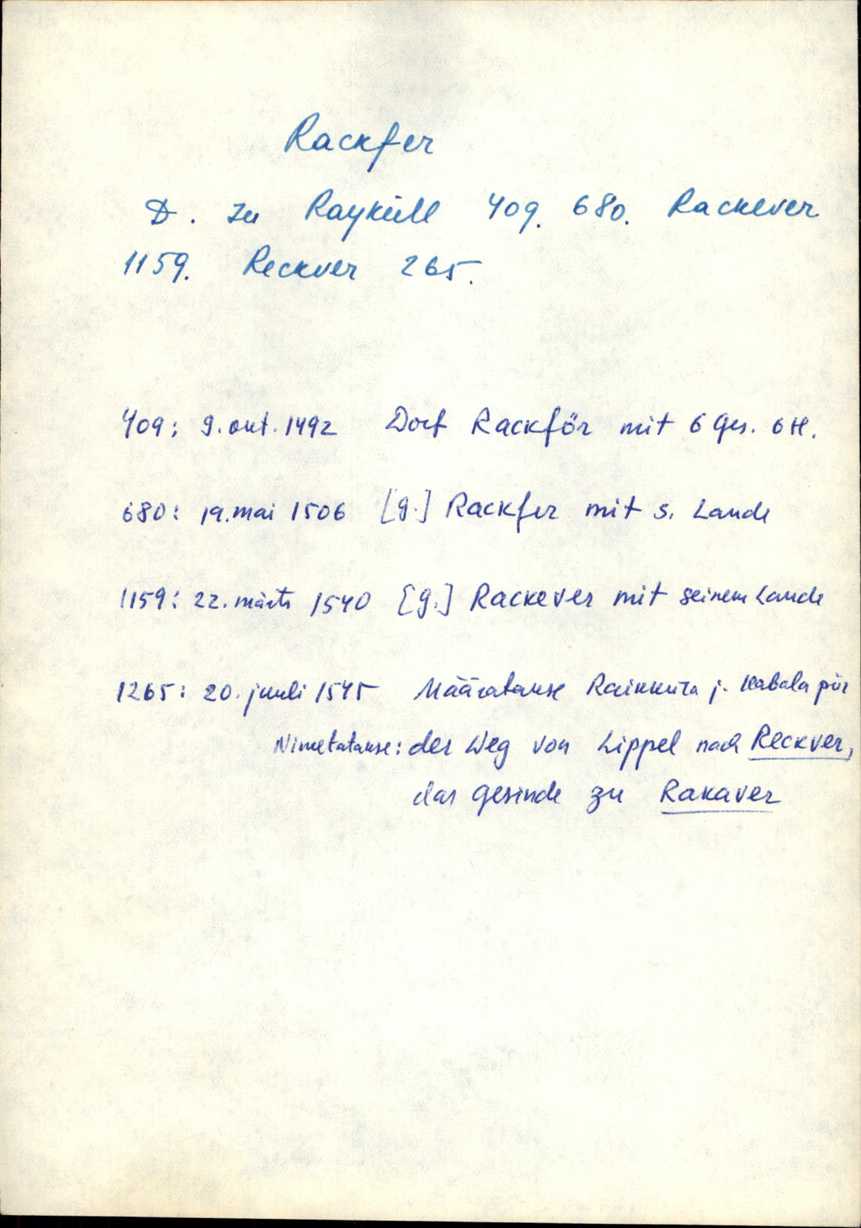 Rackfer
D. zu Rayküll 409. 680. Rackever
1159. Reckver 265.
409: 9. okt. 1492 Dorf Rackför mit 6 Ges. 6 H.
680: 19. mai 1506 [g.] Rackfer mit s. Lande
1159: 22. märts 1540 [g.] Rackever mit seinem Lande
1265: 20. juuli 1545 Määratakse Raikküla j. Kabala piir
Nimetatakse: der Weg von Lippel nach Reckver,
das gesinde zu Rakaver